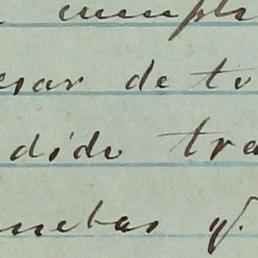 cumpl
esar de to
dido tra
uebas y.